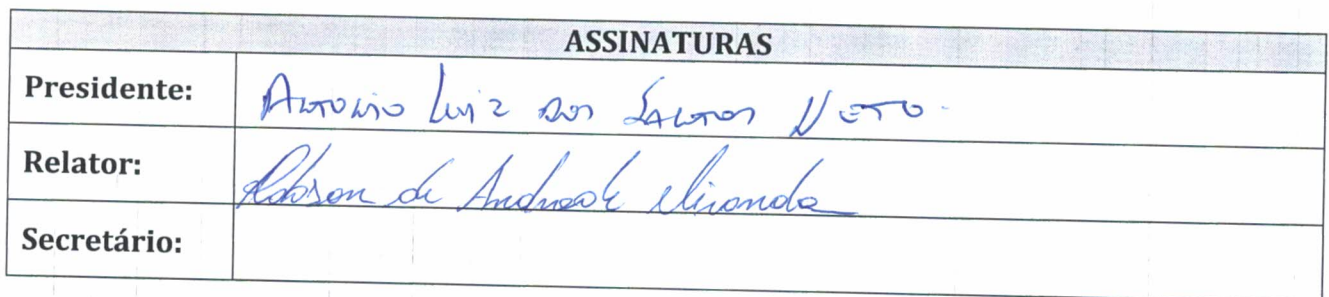 ASSINATURAS
Presidente: Antonio Luiz dos Santos Neto.
Relator: Robson de Andrade Miranda
Secretário: